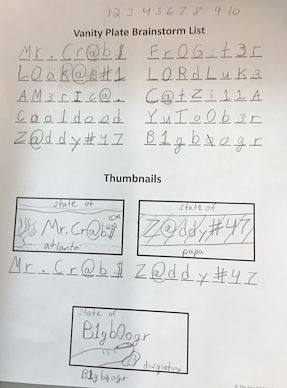 12 3 4 5 6 7 8 9 10
Vanity Plate Brainstorm List
Mr.Cr@b$ FrOGst3r
LOok@E#1 LORdLuk3
AM3rIc@. C@tZi11A
Cooldood YuToOb3r
Z@ddy#47 B1gb0ogr
Thumbnails
state of
Mr.Cr@b$
atlanta
state of
Z@ddy#47
papa
Mr.Cr@b$ Z@ddy#47
state of
B1gb0ogr
disgusting
B1gb0ogr